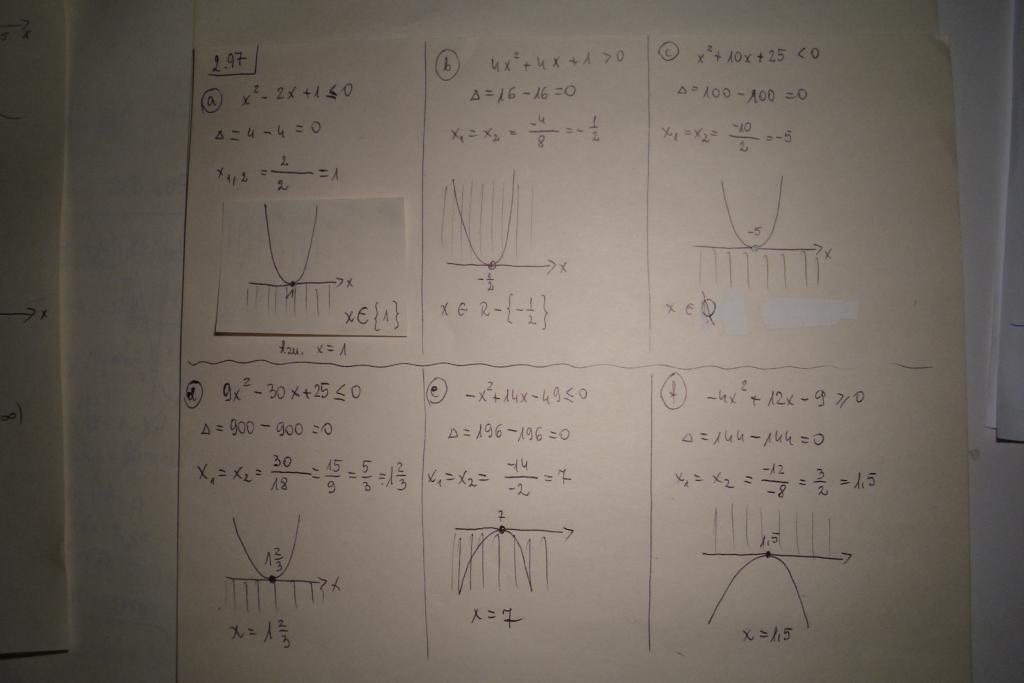 2.97
a x² - 2x + 1 ≤ 0
Δ = 4 - 4 = 0
x₁,₂ = 2/2 = 1
1
x
x ∈ {1}
tzn. x = 1
b 4x² + 4x + 1 > 0
Δ = 16 - 16 = 0
x₁ = x₂ = -4/8 = -1/2
x
-1/2
x ∈ R - {-1/2}
c x² + 10x + 25 < 0
Δ = 100 - 100 = 0
x₁ = x₂ = -10/2 = -5
-5
x
x ∈ ∅
d 9x² - 30x + 25 ≤ 0
Δ = 900 - 900 = 0
x₁ = x₂ = 30/18 = 15/9 = 5/3 = 1 2/3
1 2/3
x
x = 1 2/3
e -x² + 14x - 49 ≤ 0
Δ = 196 - 196 = 0
x₁ = x₂ = -14/-2 = 7
7
x = 7
f -4x² + 12x - 9 ≥ 0
Δ = 144 - 144 = 0
x₁ = x₂ = -12/-8 = 3/2 = 1,5
1,5
x = 1,5
x
x
∞)